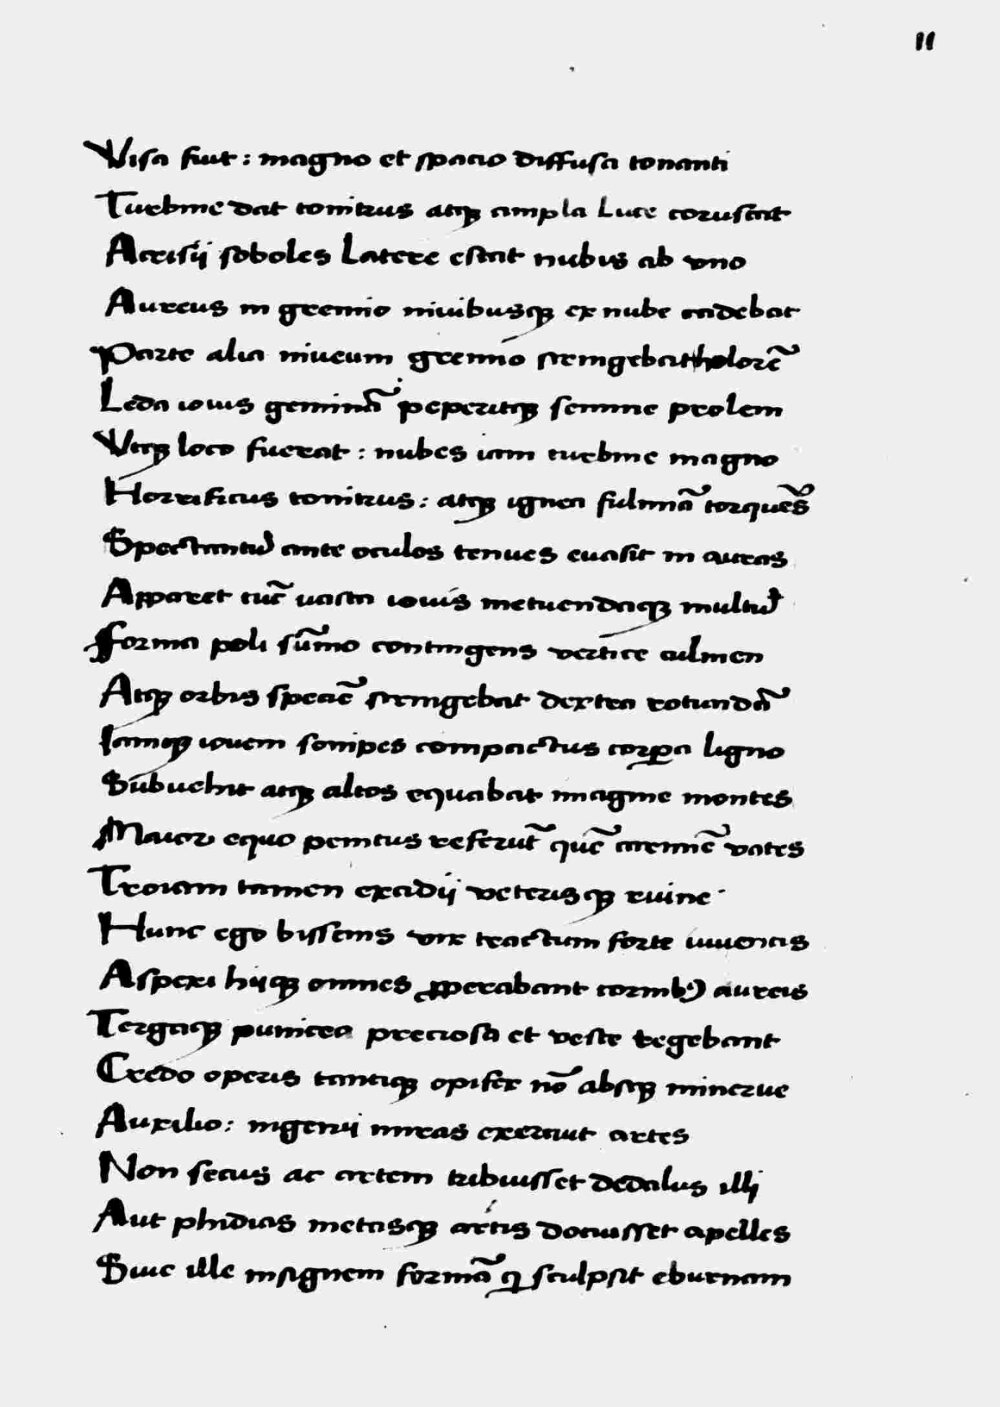 11
Visa fuit : magno et spacio diffusa tonanti
Turbine dat tonitrus atqꝫ ampla Luce coruscat
Acrisij soboles Latere estat nubis ab vno
Aureus in gremio niuibusqꝫ ex nube cadebat
Parte alia niueum gremio stringebat holorē
Leda iouis geminā peperitqꝫ semine prolem
Vtqꝫ loco fuerat : nubes iam turbine magno
Horrificus tonitrus : atqꝫ ignea fulminā torquēs
Spectantū ante oculos tenues euasit in auras
Apparet tūc uasta iouis metuendaqꝫ multū
Forma poli sūmo contingens vertice culmen
Atqꝫ orbis speciē stringebat dextra rotundā
Iamqꝫ iouem sonipes compactus corꝑa ligno
Subuehit atqꝫ altos equabat imagine montes
Maior equo penitus referūt quē carminē vates
Troiam tamen exadij veterisqꝫ ruine
Hunc ego bissenis vix tractum forte iuuencis
Asperi hijqꝫ omnes ꝓperabant cornibꝰ aureis
Tergaqꝫ punicea preciosa et veste tegebant
Credo operis tantiqꝫ opifex nō absqꝫ minerue
Auxilio : ingenij miras exercuit artes
Non secus ac artem tribuisset dedalus illi
Aut phidias metasqꝫ artis docuisset apelles
Siue ille insignem formā qͥ sculpsit eburnam